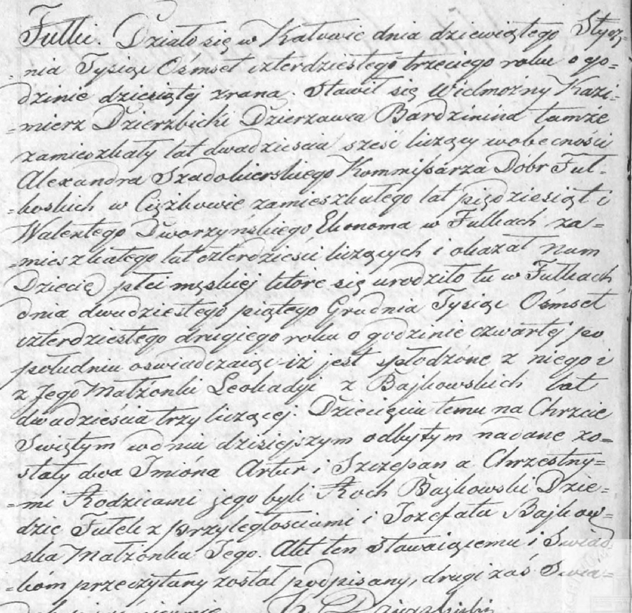 Futki. Działo się w Kałowie dnia dziewiątego Stycz-
-nia Tysiąc Ośmset czterdziestego trzeciego roku o go-
dzinie dziesiątej zrana. Stawił się Wielmożny Kazi-
-mierz Dzierzbicki Dzierzawca Bardzinina tamże
zamieszkały lat dwadziescia sześć liczący w obecności
Alexandra Szadokierskiego Kommissarza Dóbr Fut-
-koskich w Ciążkowie zamieszkałego lat pięćdziesiąt i
Walentego Dworzynskiego Ekonoma w Futkach za-
-mieszkałego lat czterdzieści liczących i okazał nam
Dziecię płci męskiej które się urodziło tu w Futkach
dnia dwudziestego piątego Grudnia Tysiąc Ośmset
czterdziestego drugiego roku o godzinie czwartej po
południu oswiadczaiąc iż jest spłodzone z niego i
z Jego Małżonki Leokadyi z Bajkowskich lat
dwadzieścia trzy liczącej. Dziecięciu temu na Chrzcie
Swiętym w dniu dzisiejszym odbytym nadane zo-
stały dwa Imiona Artur i Szczepan a Chrzestny-
-mi Rodzicami jego byli Roch Bajkowski Dzie-
dzic Futek z przyległościami i Jozefata Bajkow-
ska Małżonka Jego. Akt ten Stawaiącemu i Swiad
-kom przeczytany został podpisany, drugi zaś Swia-